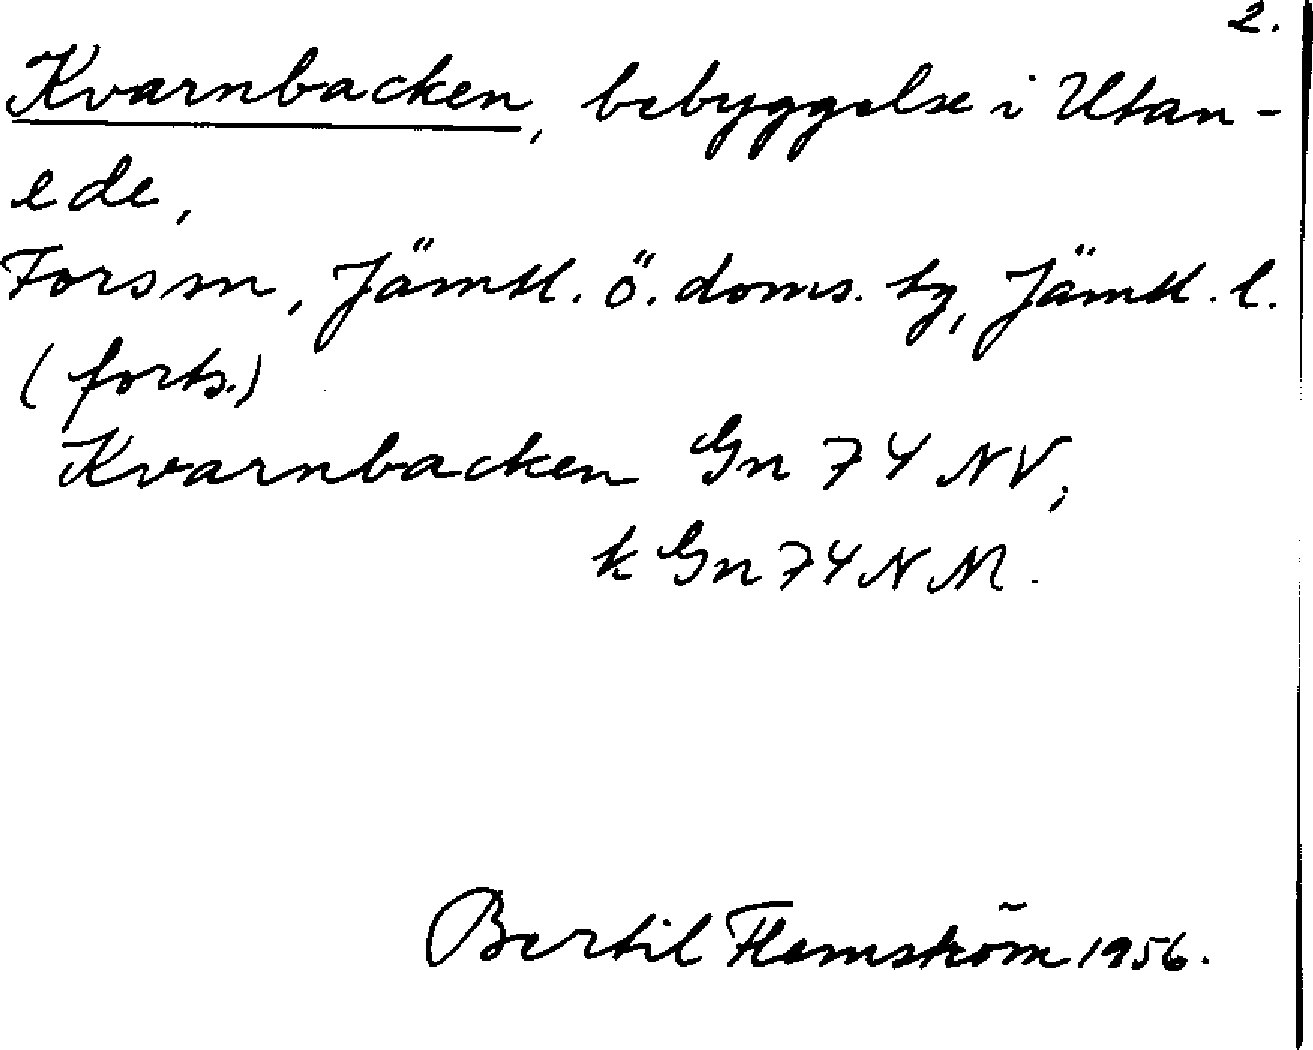 2.
Kvarnbacken, bebyggelse i Utan-
ede,
Fors sn, Jämtl. ö. doms. tg, Jämtl. l.
(forts.)
Kvarnbacken Gn 74 NV;
k Gn 74 N M.
Bertil Flemström 1956.